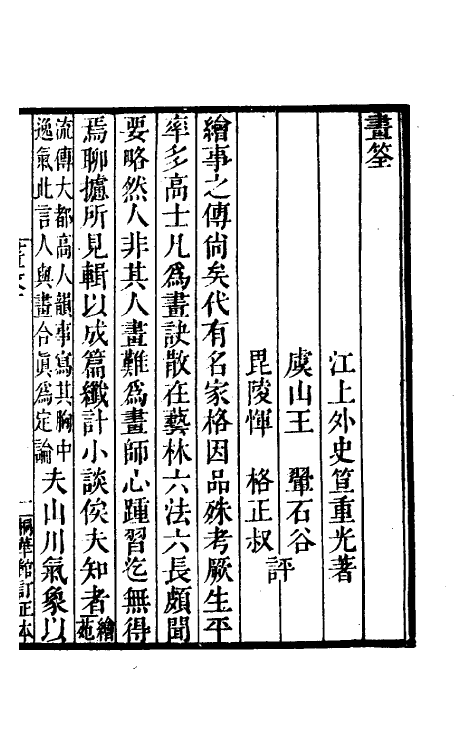 畫筌
江上外史笪重光著
虞山王　翬石谷
毘陵惲　格正叔
評
繪事之傳尚矣代有名家格因品殊考厥生平
率多高士凡爲畫訣散在藝林六法六長頗聞
要略然人非其人畫難爲畫師心踵習迄無得
焉聊攄所見輯以成篇纖計小談俟夫知者繪苑
流傳大都高人韻事寫其胸中
逸氣此言人與畫合眞爲定論夫山川氣象以
一
桐華館訂正本